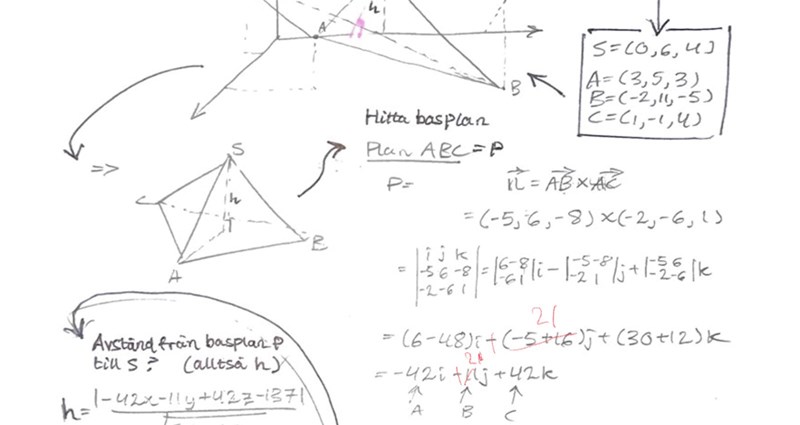 h
A
B
S=(0,6,4)
A=(3,5,3)
B=(-2,11,-5)
C=(1,-1,4)
Hitta basplan
Plan ABC = P
=>
S
C
h
T
B
A
P=
n⃗ = AB⃗ × AC⃗
= (-5,6,-8) × (-2,-6,1)
= |i j k|
|-5 6 -8|
|-2 -6 1|
= |6 -8|
|-6 1| i - |-5 -8|
|-2 1| j + |-5 6|
|-2 -6| k
21
= (6-48)i + (-5+16)j + (30+12)k
21
= -42i + 11j + 42k
A B C
Avstånd från basplan P
till S? (alltså h)
h = |-42x-11y+42z-137|